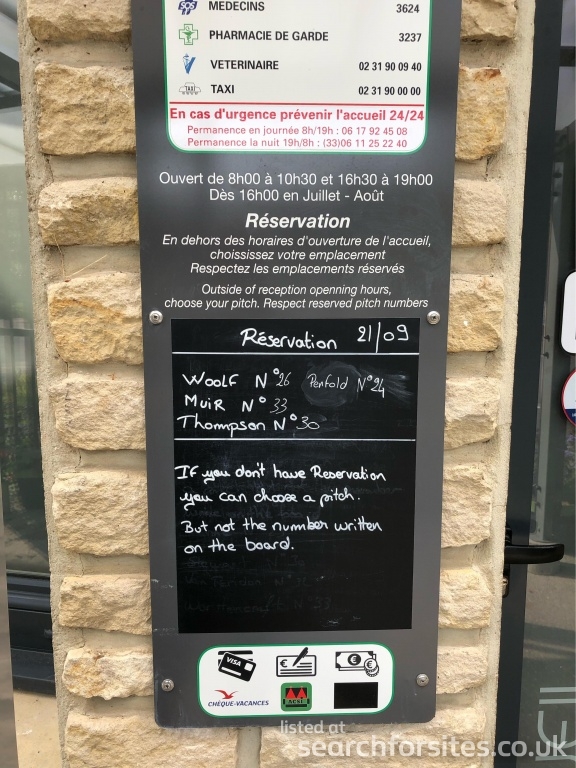 SOS MEDECINS 3624
PHARMACIE DE GARDE 3237
VETERINAIRE 02 31 90 09 40
TAXI TAXI 02 31 90 00 00
En cas d'urgence prévenir l'accueil 24/24
Permanence en journée 8h/19h : 06 17 92 45 08
Permanence la nuit 19h/8h : (33)06 11 25 22 40
Ouvert de 8h00 à 10h30 et 16h30 à 19h00
Dès 16h00 en Juillet - Août
Réservation
En dehors des horaires d'ouverture de l'accueil,
choississez votre emplacement
Respectez les emplacements réservés
Outside of reception openning hours,
choose your pitch. Respect reserved pitch numbers
Réservation 21/09
Woolf N°26 Penfold N°24
Muir N° 33
Thompson N°30
If you don't have Reservation
you can choose a pitch.
But not the number written
on the board.
VISA
CHÈQUE-VACANCES
ACSI
listed at
searchforsites.co.uk